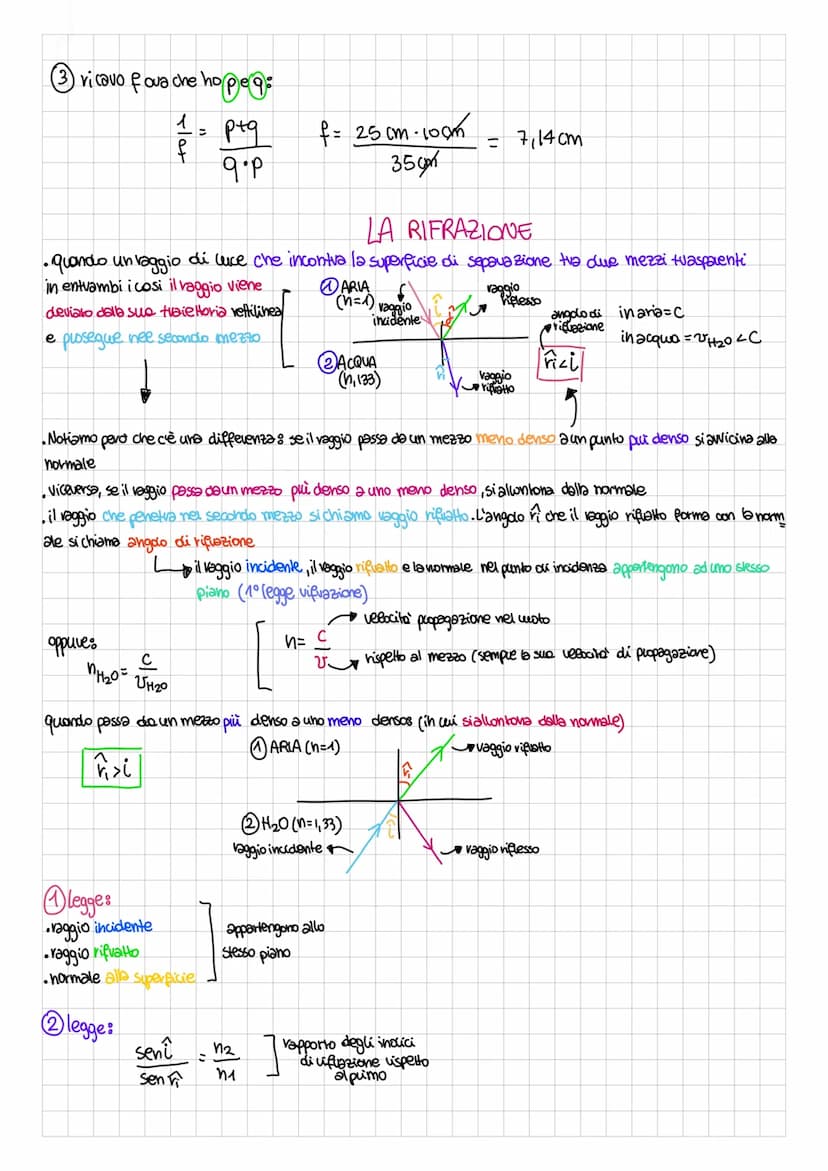 ③ ricavo f ora che ho p e q:
1/f = p+q / q·p    f = 25 cm · 10 cm / 35 cm = 7,14 cm
LA RIFRAZIONE
. quando un raggio di luce che incontra la superficie di separazione tra due mezzi trasparenti
in entrambi i casi il raggio viene
deviato dalla sua traiettoria rettilinea
e prosegue nel secondo mezzo
① ARIA
(n=1)
raggio
incidente
î
r̂
raggio
riflesso
② ACQUA
(n, 133)
r̂i
raggio
rifratto
angolo di
rifrazione
r̂i < i
in aria = C
in acqua = vH2O < C
. Notiamo però che c'è una differenza: se il raggio passa da un mezzo meno denso a un punto più denso si avvicina alla
normale
. viceversa, se il raggio passa da un mezzo più denso a uno meno denso, si allontana dalla normale
. il raggio che penetra nel secondo mezzo si chiama raggio rifratto. L'angolo r̂i che il raggio rifratto forma con la norm
ale si chiama angolo di rifrazione
il raggio incidente, il raggio rifratto e la normale nel punto di incidenza appartengono ad uno stesso
piano (1° legge rifrazione)
oppure:
nH2O = C / vH2O
n = C / v
velocità propagazione nel vuoto
rispetto al mezzo (sempre la sua velocità di propagazione)
quando passa da un mezzo più denso a uno meno densos (in cui si allontana dalla normale)
r̂i > i
① ARIA (n=1)
r̂i
raggio rifratto
② H2O (n=1,33)
î
raggio incidente
raggio riflesso
① legge:
. raggio incidente
. raggio rifratto
. normale alla superficie
appartengono allo
stesso piano
② legge:
sen î / sen r̂i = n2 / n1
rapporto degli indici
di rifrazione rispetto
al primo